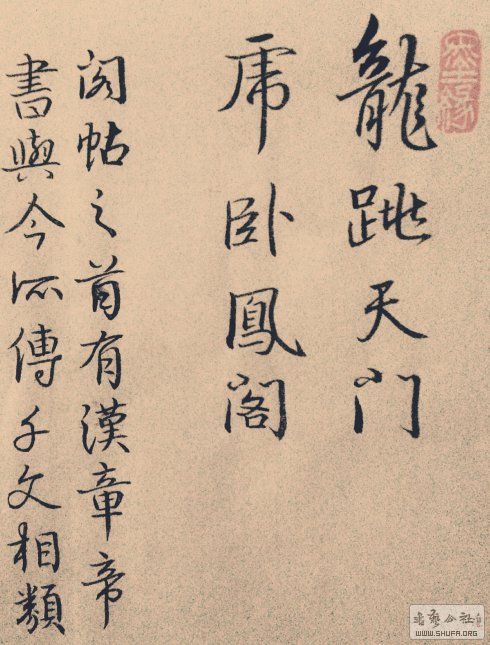 龍跳天门
虎卧鳳閣
阁帖之首有漢章帝
書與今所傳千文相類
书艺公社
WWW.SHUFA.ORG